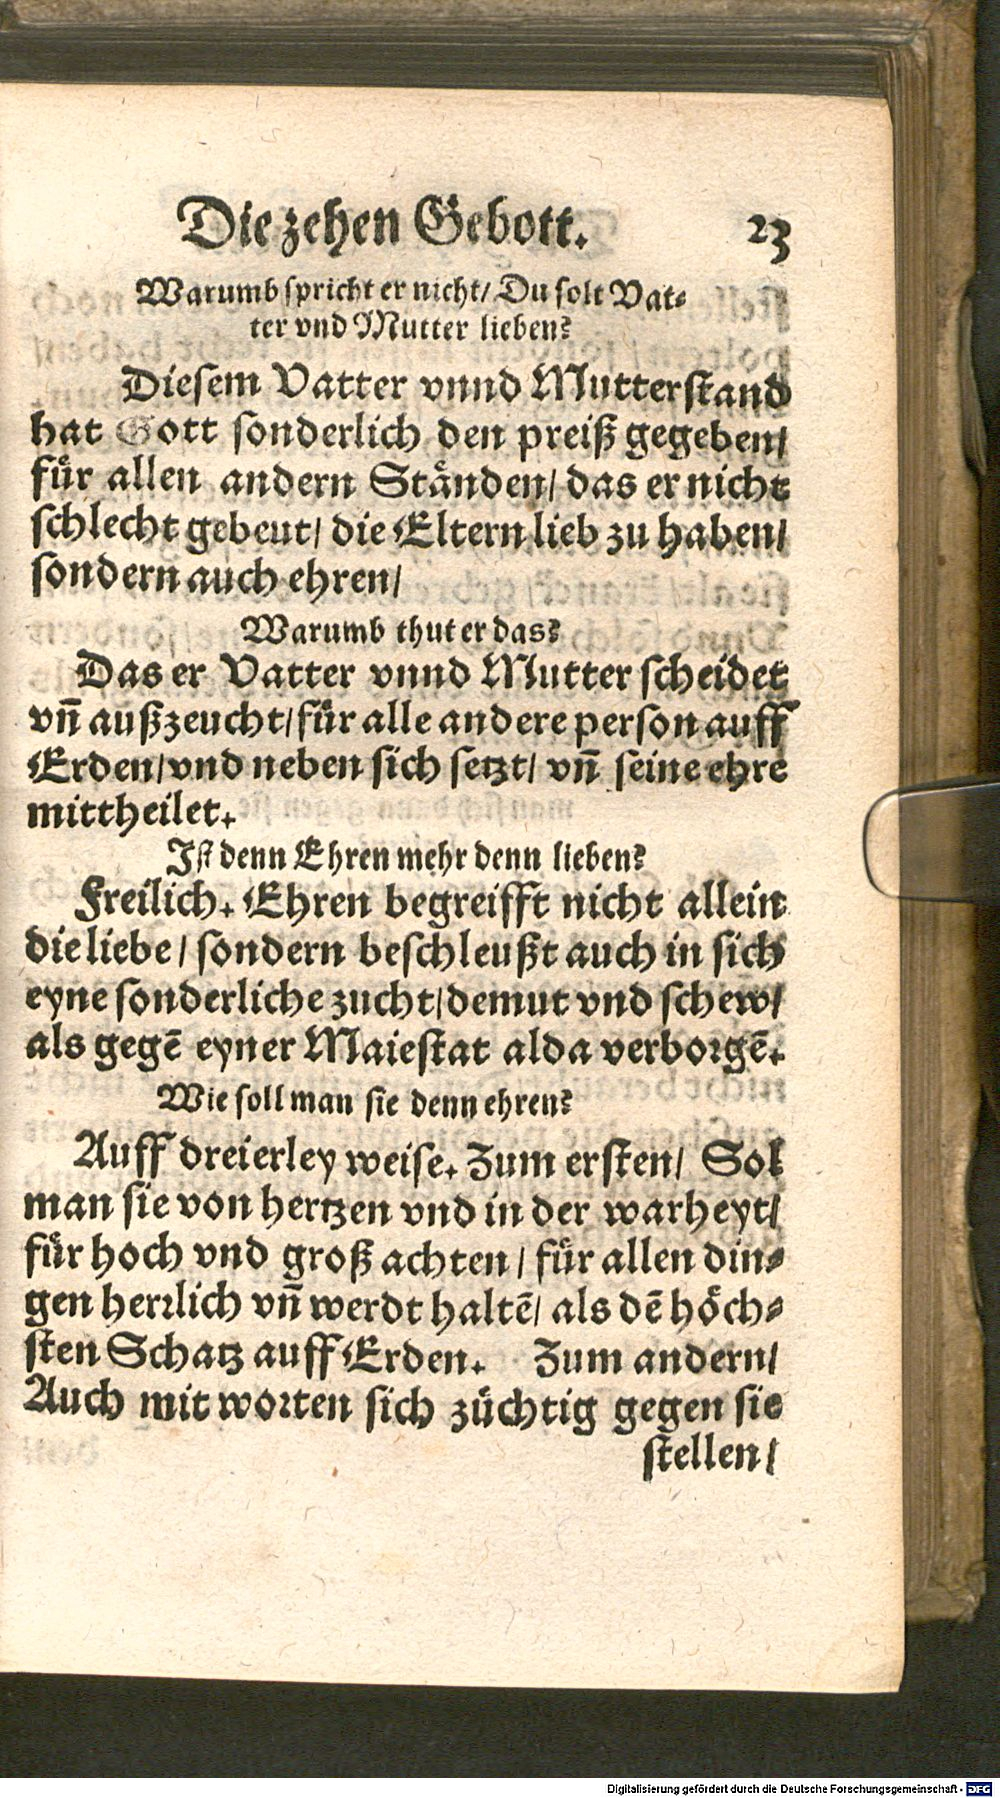 Die zehen Gebott. 23
Warumb spricht er nicht/ Du solt Vat⸗
ter vnd Mutter lieben?
Diesem Vatter vnnd Mutterstand
hat Gott sonderlich den preiß gegeben/
fuͤr allen andern Staͤnden/ das er nicht
schlecht gebeut/ die Eltern lieb zu haben/
sondern auch ehren/
Warumb thut er das?
Das er Vatter vnnd Mutter scheidet
vñ außzeucht/ fuͤr alle andere person auff
Erden/ vnd neben sich setzt/ vñ seine ehre
mittheilet.
Ist denn Ehren mehr denn lieben?
Freilich. Ehren begreifft nicht allein
die liebe/ sondern beschleußt auch in sich
eyne sonderliche zucht/ demut vnd schew/
als gegē eyner Maiestat alda verborgē.
Wie soll man sie denn ehren?
Auff dreierley weise. Zum ersten/ Sol
man sie von hertzen vnd in der warheyt/
fuͤr hoch vnd groß achten/ fuͤr allen din⸗
gen herrlich vñ werdt haltē/ als dē hoͤch⸗
sten Schatz auff Erden. Zum andern/
Auch mit worten sich zuͤchtig gegen sie
stellen/
Digitalisierung gefördert durch die Deutsche Forschungsgemeinschaft - DFG